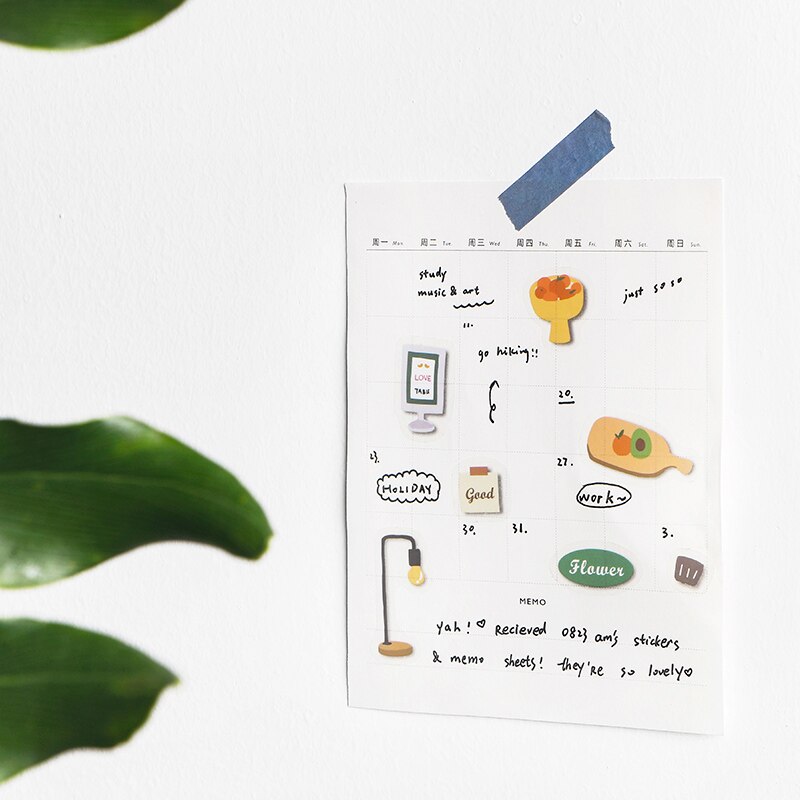 周一 Mon. 周二 Tue. 周三 Wed 周四 Thu. 周五 Fri. 周六 Sat. 周日 Sun.
study
music & art
just so so
11.
go hiking!!
LOVE
20.
23.
HOLIDAY
Good
27.
work~
30.
31.
3.
Flower
MEMO
yah! ♡ Recieved 0823 am's stickers
& memo sheets! they're so lovely♡